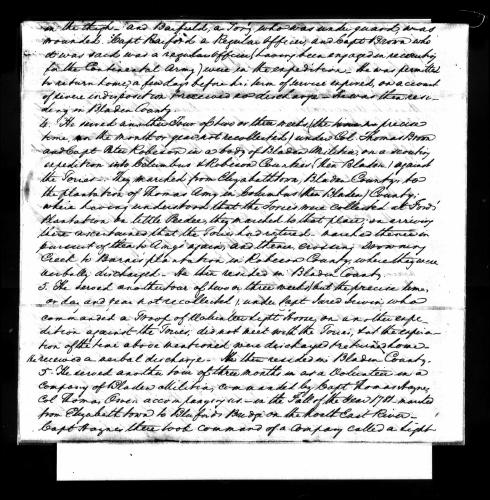 in the thigh and Barfield, a Tory, who was under guard, was
wounded. Capt Raiford a Regular Officer, and Capt Devon who
it was said was a regular officer, having been engaged in recruiting
for the Continental Army) were in the expedition. He was permitted
to return home, a few days before his term of service expired, on account
of severe indisposition & received no discharge. He was then resi-
ding in Bladen County
4. He served another Tour of two or three weeks (the precise
time, or the month or year not recollected) under Col Thomas Owen
and Capt Peter Robeson in a body of Bladen Militia, on a scouting
expedition into Columbus & Robeson Counties (then Bladen) against
the Tories. They marched from Elizabethtown, Bladen County to
the plantation of Thomas Amy in Columbus (then Bladen) County;
where having understood that the Tories were collected at Ford's
Plantation on Little Pedee, they marched to that place, on arriving
there ascertained that the Tories had retired. Marched thence in
pursuit of them to Amy's again, and thence crossing Drowning
Creek to Barnes plantation in Robeson County where they were
verbally discharged. He then resided in Bladen County.
5. He served another tour of two or three weeks (but the precise time,
or day and year not recollected), under Capt Jared Irwin who
commanded a Troop of Volunteer Light Horse, on another expe-
dition against the Tories, did not meet with the Tories, & at the expira-
tion of the time above mentioned were discharged & returned home
He received a verbal discharge. He then resided in Bladen County.
5. He served another tour of three months, as a Volunteer in a
Company of Bladen Militia commanded by Capt Thomas Hayne,
Col Thomas Owen accompanying us in the Fall of the Year 1781. marched
from Elizabethtown to Blufords Bridge on the North East River.
Capt Haynes then took command of a Company called a Light